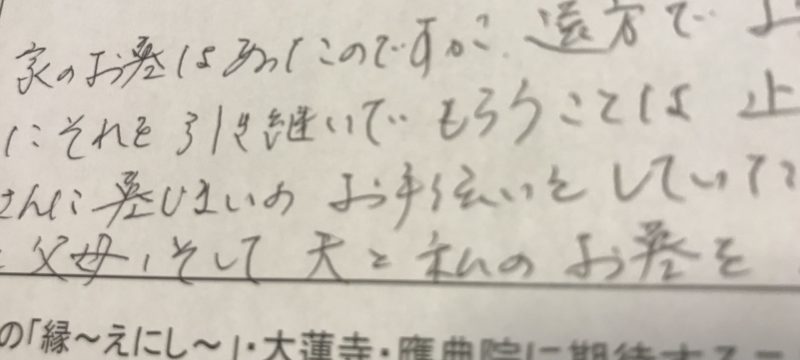 家のお墓はあったのですが、遠方で
にそれを引き継いでもらうことは
さんに墓じまいのお手伝いをしていた
父母、そして夫と私のお墓を
の「縁〜えにし〜」・大蓮寺・應典院に期待する